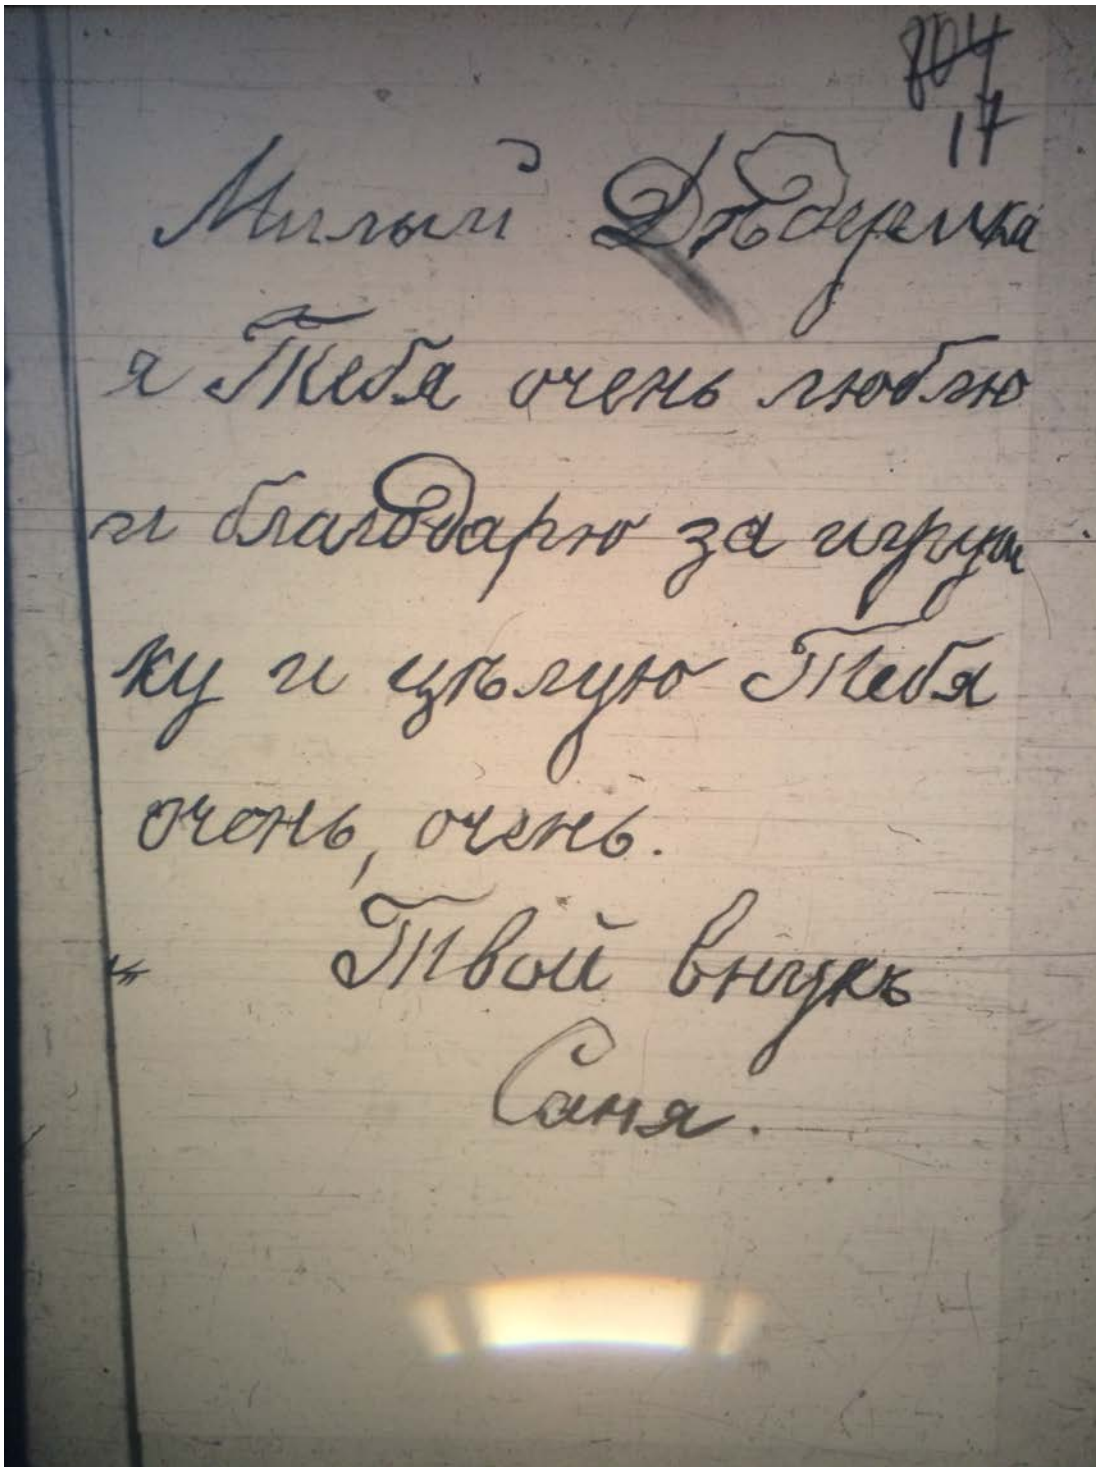 804
17
Милый Дѣдушка
я Тебя очень люблю
и благодарю за игруш
ку и цѣлую Тебя
очонь, очень.
Твой внукъ
Саня.